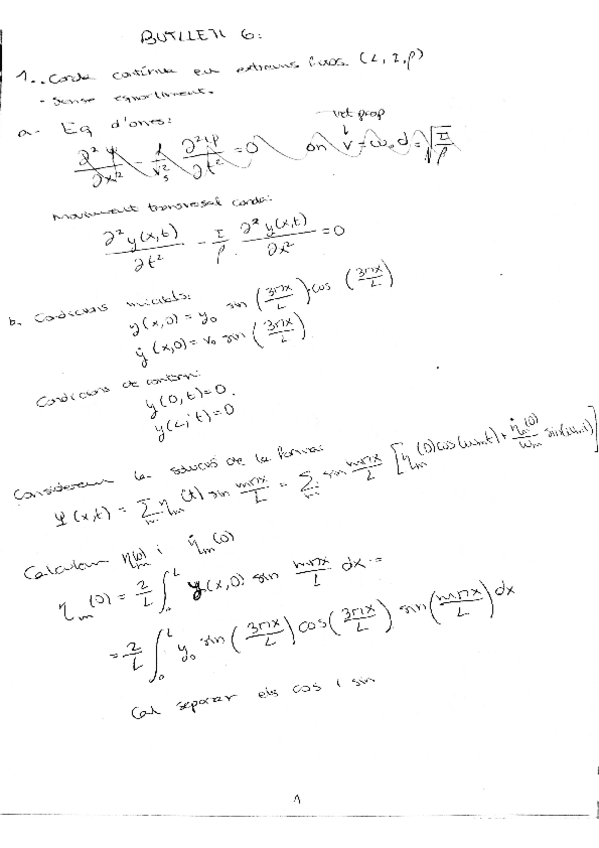 BUTLLETI 6:
1.. Corda contínua en extrems fixos. (L, I, ρ)
- Sense esmorteïment.
a- Eq d'ones:
vel prop
∂²ψ/∂x² - 1/v_s² ∂²ψ/∂t² = 0 on v = ω₀ d = √(I/ρ)
Moviment transversal corda:
∂²y(x,t)/∂t² - I/ρ · ∂²y(x,t)/∂x² = 0
b. Condicions inicials:
y(x,0) = y₀ sin(3πx/L) · cos(3πx/L)
ẏ(x,0) = v₀ sin(3πx/L)
Condicions de contorn:
y(0,t)=0.
y(L,t)=0
Considerem la solució de la forma:
Ψ(x,t) = Σ η_m(t) sin mπx/L = Σ sin mπx/L [η_m(0) cos(ω_m t) + η̇_m(0)/ω_m sin(ω_m t)]
Calculem η_m(0) i η̇_m(0)
η_m(0) = 2/L ∫₀^L y(x,0) sin mπx/L dx =
= 2/L ∫₀^L y₀ sin(3πx/L) cos(3πx/L) sin(mπx/L) dx
Cal separar els cos i sin
1